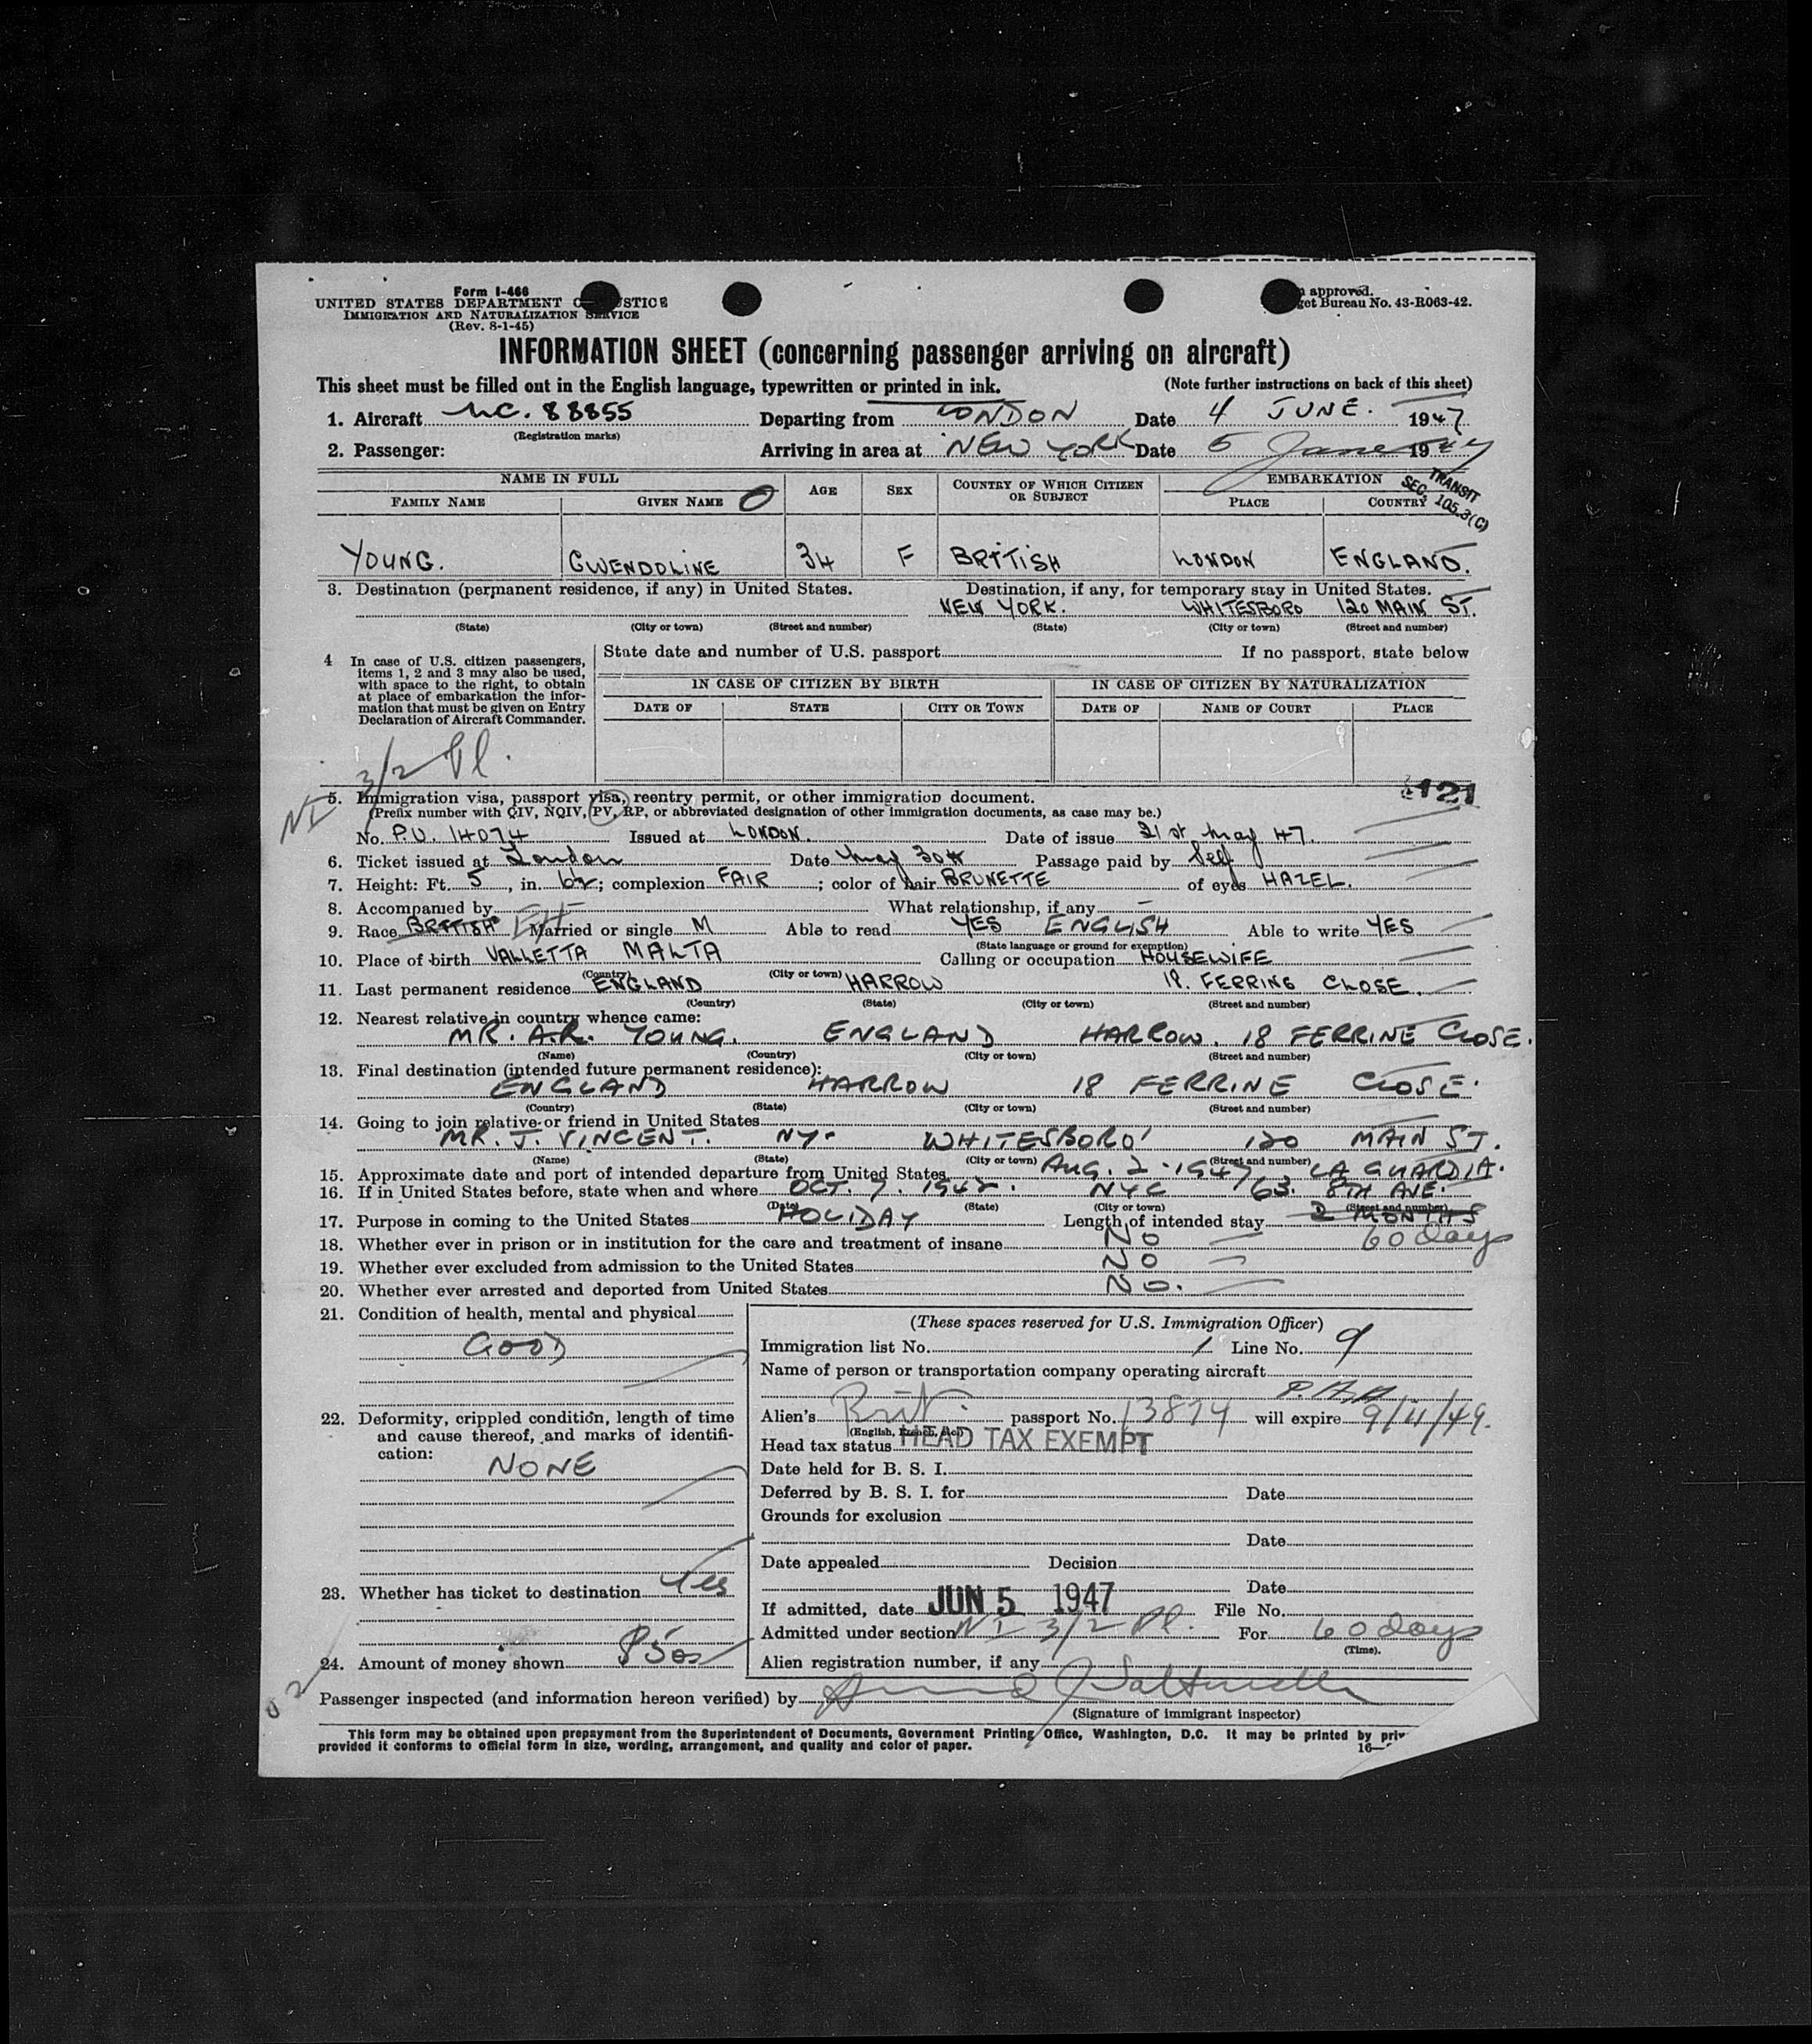 Form I-466
UNITED STATES DEPARTMENT OF JUSTICE
IMMIGRATION AND NATURALIZATION SERVICE
(Rev. 8-1-45)
approved.
Bureau No. 43-R063-42.
INFORMATION SHEET (concerning passenger arriving on aircraft)
This sheet must be filled out in the English language, typewritten or printed in ink. (Note further instructions on back of this sheet)
1. Aircraft NC. 88855 Departing from LONDON Date 4 JUNE. 1947
(Registration marks)
2. Passenger: Arriving in area at NEW YORK Date 5 June 1947
TRANSIT
SEC. 105.3(C)
NAME IN FULL AGE SEX COUNTRY OF WHICH CITIZEN OR SUBJECT EMBARKATION
FAMILY NAME GIVEN NAME PLACE COUNTRY
YOUNG. GWENDOLINE 34 F BRITISH LONDON ENGLAND.
3. Destination (permanent residence, if any) in United States. Destination, if any, for temporary stay in United States.
NEW YORK. WHITESBORO 120 MAIN ST.
(State) (City or town) (Street and number) (State) (City or town) (Street and number)
4 In case of U.S. citizen passengers, items 1, 2 and 3 may also be used, with space to the right, to obtain at place of embarkation the information that must be given on Entry Declaration of Aircraft Commander.
State date and number of U.S. passport If no passport, state below
IN CASE OF CITIZEN BY BIRTH IN CASE OF CITIZEN BY NATURALIZATION
DATE OF STATE CITY OR TOWN DATE OF NAME OF COURT PLACE
NI 3/2 Pl.
121
5. Immigration visa, passport visa, reentry permit, or other immigration document.
(Prefix number with QIV, NQIV, PV, RP, or abbreviated designation of other immigration documents, as case may be.)
No. P.V. 14074 Issued at LONDON. Date of issue 21st May 47.
6. Ticket issued at London Date May 30th Passage paid by Self
7. Height: Ft. 5, in. 6½; complexion FAIR; color of hair BRUNETTE of eyes HAZEL.
8. Accompanied by – What relationship, if any –
9. Race BRITISH Married or single M Able to read YES ENGLISH Able to write YES
(State language or ground for exemption)
10. Place of birth VALLETTA MALTA Calling or occupation HOUSEWIFE
(Country) (City or town)
11. Last permanent residence ENGLAND HARROW 18. FERRING CLOSE.
(Country) (State) (City or town) (Street and number)
12. Nearest relative in country whence came:
MR. A.R. YOUNG. ENGLAND HARROW. 18 FERRINE CLOSE.
(Name) (Country) (City or town) (Street and number)
13. Final destination (intended future permanent residence):
ENGLAND HARROW 18 FERRINE CLOSE.
(Country) (State) (City or town) (Street and number)
14. Going to join relative or friend in United States
MR. J. VINCENT. NY. WHITESBORO' 120 MAIN ST.
(Name) (State) (City or town) (Street and number)
15. Approximate date and port of intended departure from United States AUG. 2. 1947 LA GUARDIA.
16. If in United States before, state when and where OCT. 7. 1942. NYC 63. 8TH AVE.
(Date) (State) (City or town) (Street and number)
17. Purpose in coming to the United States HOLIDAY Length of intended stay 2 MONTHS
60 days
18. Whether ever in prison or in institution for the care and treatment of insane NO
19. Whether ever excluded from admission to the United States NO
20. Whether ever arrested and deported from United States NO.
21. Condition of health, mental and physical
GOOD
22. Deformity, crippled condition, length of time and cause thereof, and marks of identification:
NONE
23. Whether has ticket to destination Yes
24. Amount of money shown $500
(These spaces reserved for U.S. Immigration Officer)
Immigration list No. 1 Line No. 9
Name of person or transportation company operating aircraft
P.A.A
Alien's Brit. passport No. 13874 will expire 9/11/49.
(English, French, etc.)
Head tax status HEAD TAX EXEMPT
Date held for B. S. I.
Deferred by B. S. I. for Date
Grounds for exclusion
Date
Date appealed Decision
Date
If admitted, date JUN 5 1947 File No.
Admitted under section NI 3/2 Pl. For 60 days
(Time).
Alien registration number, if any
Passenger inspected (and information hereon verified) by
(Signature of immigrant inspector)
This form may be obtained upon prepayment from the Superintendent of Documents, Government Printing Office, Washington, D.C. It may be printed by
provided it conforms to official form in size, wording, arrangement, and quality and color of paper.
16—